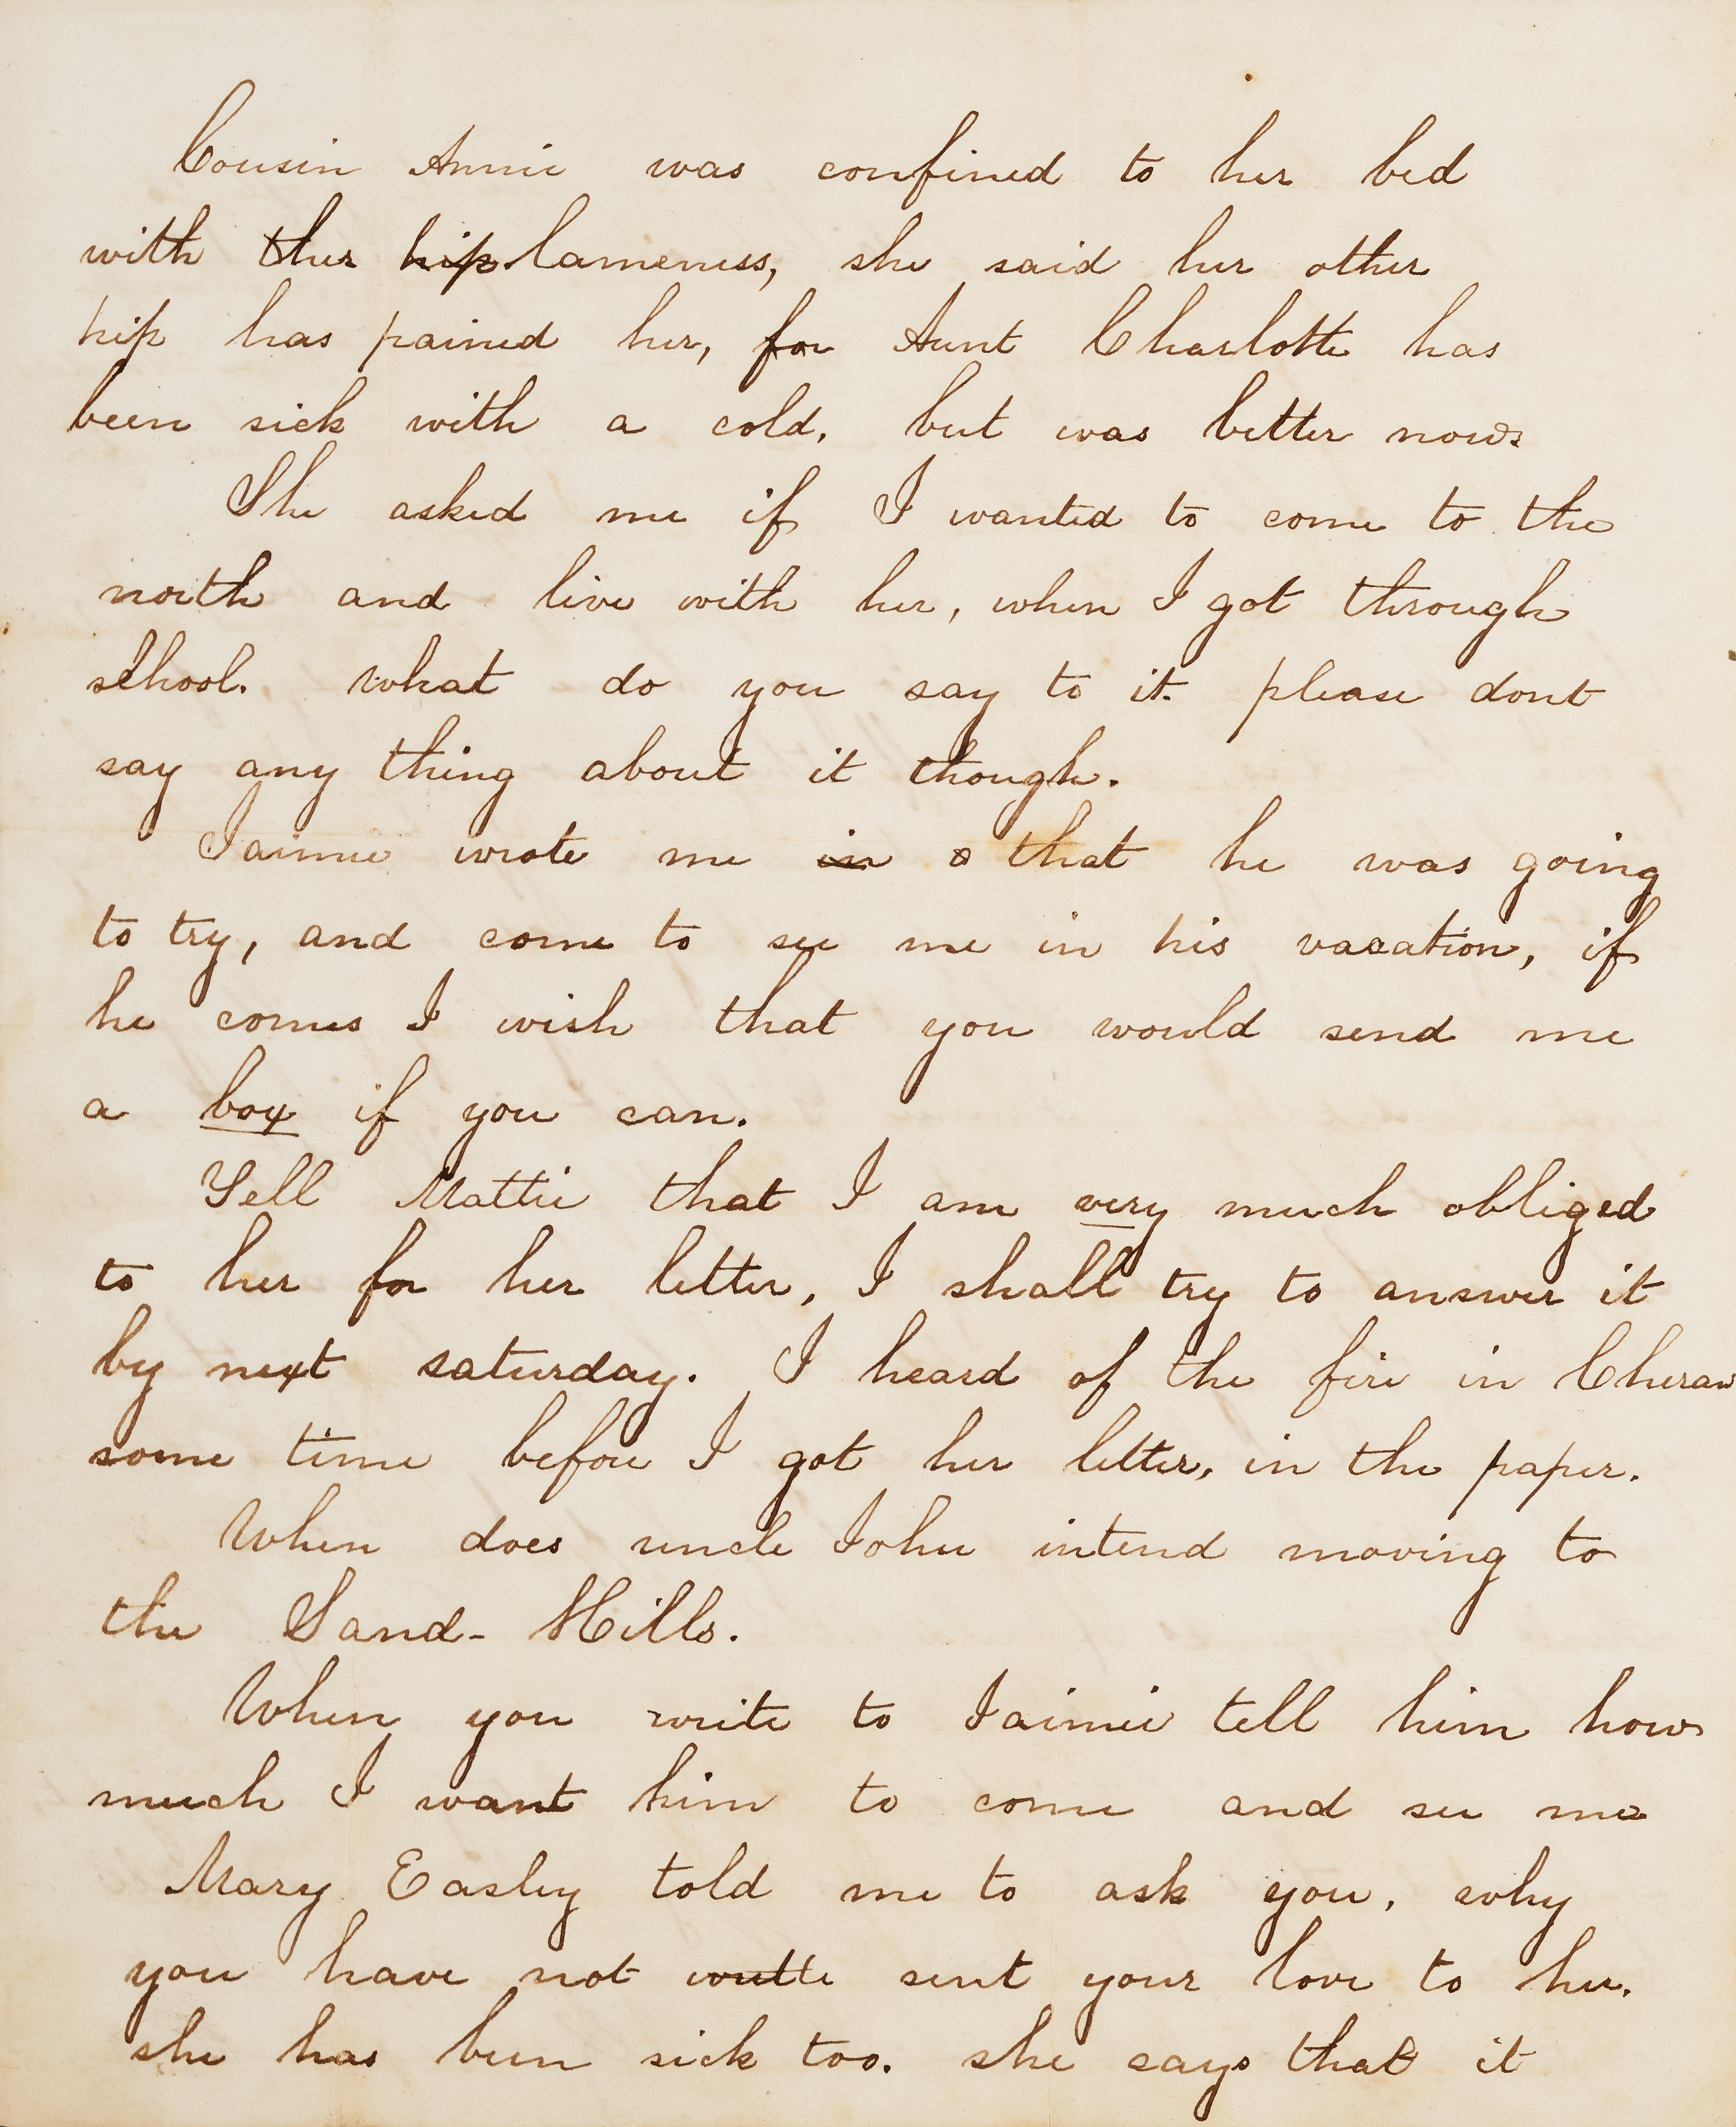 Cousin Annie was confined to her bed
with ther hip lameness, she said her other
hip has pained her, for Aunt Charlotte has
been sick with a cold, but was better now
She asked me if I wanted to come to the
north and live with her, when I got through
school. what do you say to it. please dont
say any thing about it though.
Jaimie wrote me in that he was going
to try, and come to see me in his vacation, if
he comes I wish that you would send me
a box if you can.
Tell Mattie that I am very much obliged
to her for her letter, I shall try to answer it
by next saturday. I heard of the fire in Cheraw
some time before I got her letter, in the paper.
When does uncle John intend moving to
the Sand-Hills.
When you write to Jaimie tell him how
much I want him to come and see me
Mary Easley told me to ask you, why
you have not sent your love to her.
she has been sick too. she says that it